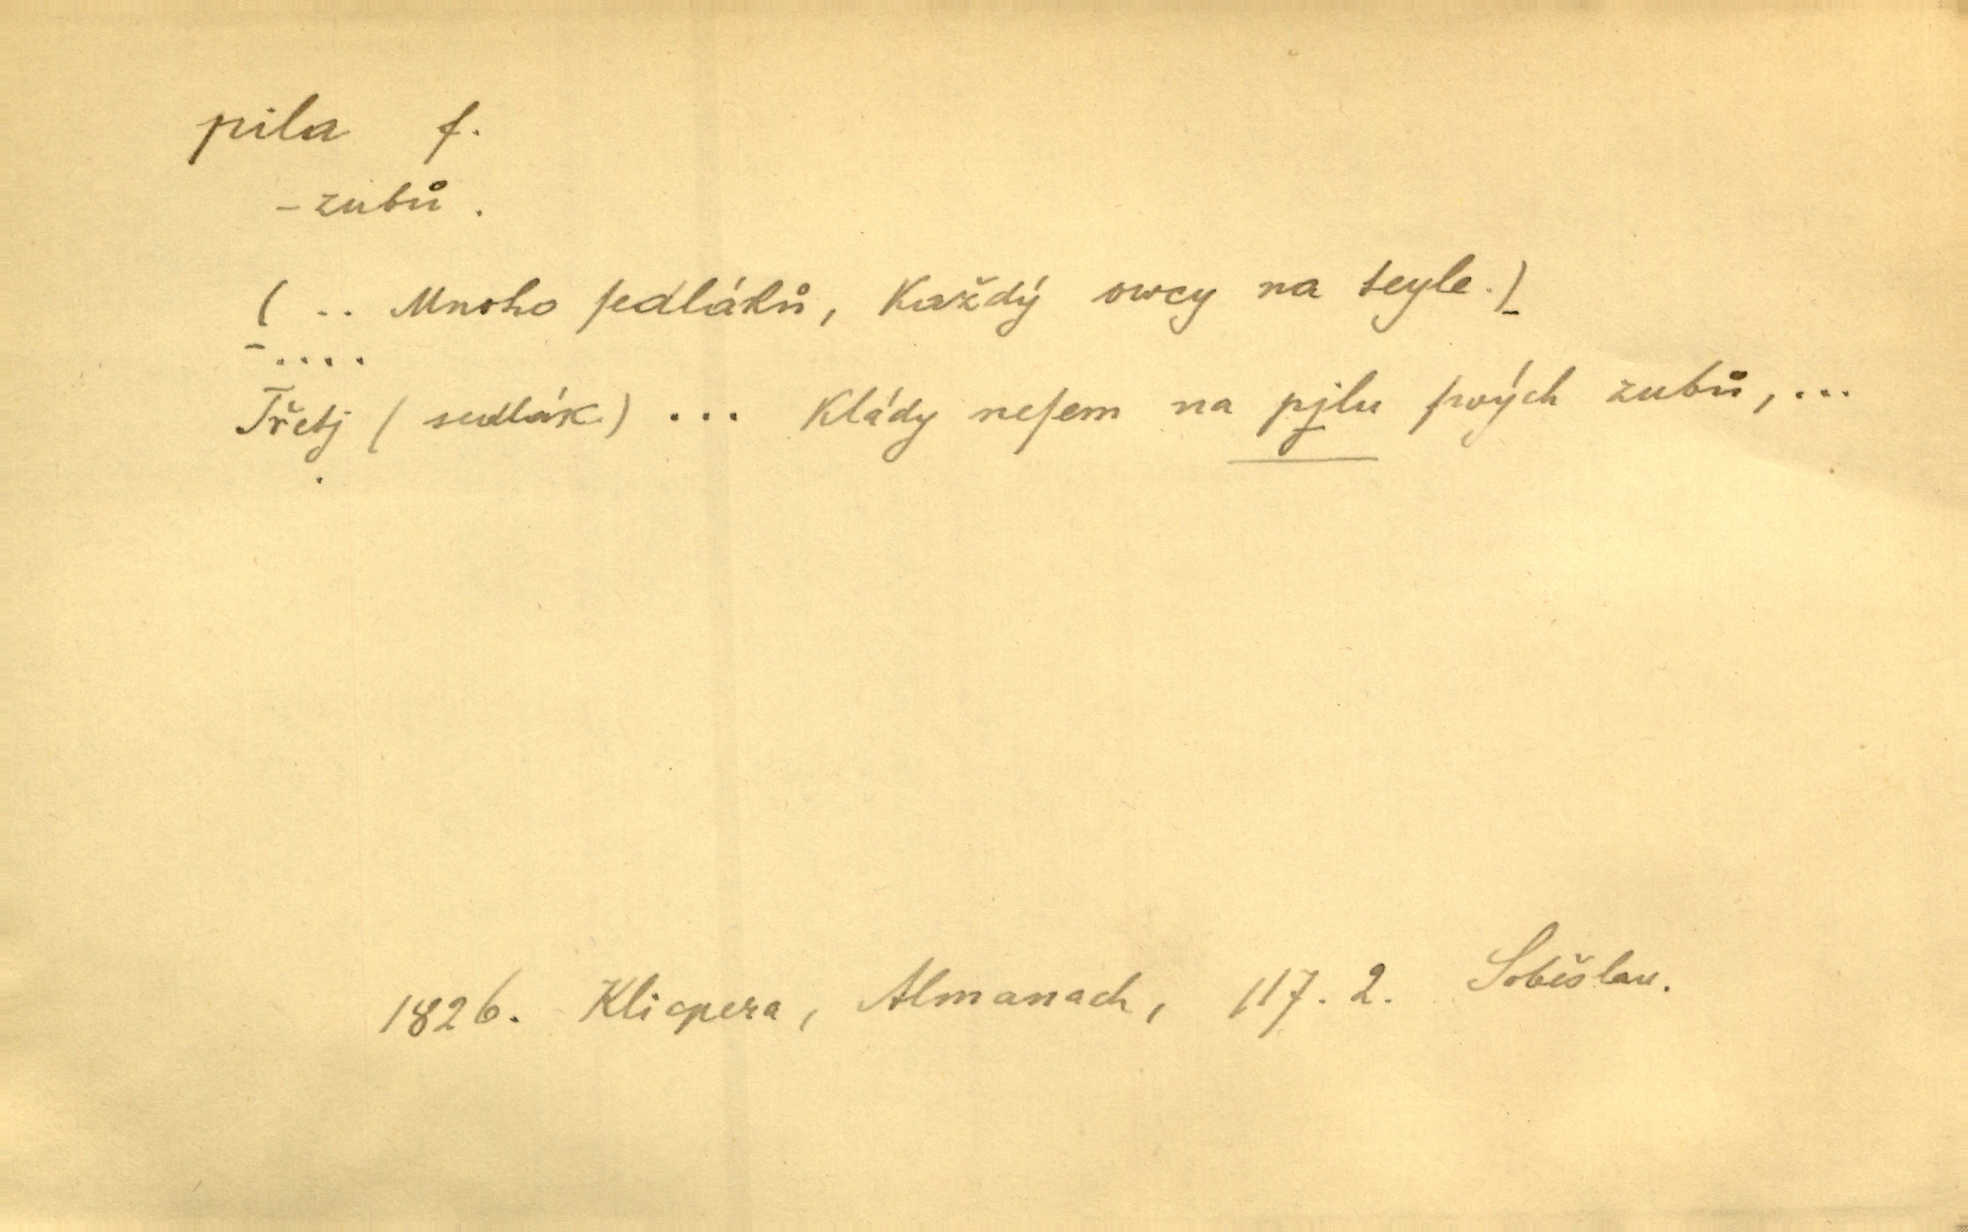 pila f.
- zubů.
( .. Mnoho ſedláků, Každý owcy na teyle.)
....
Třetj ( sedlák.) ... Klády neſem na pjlu ſwých zubů, ...
1826. Klicpera, Almanach, 117. 2. Soběslau.